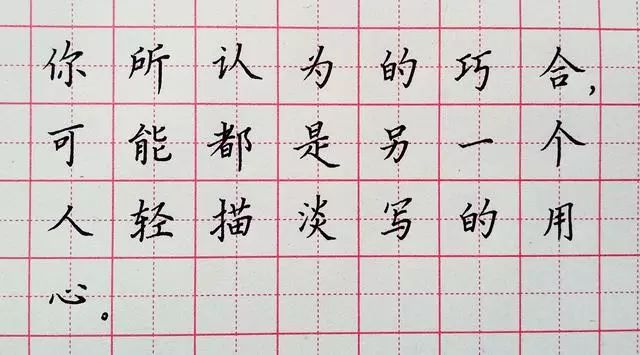 你所认为的巧合,
可能都是另一个
人轻描淡写的用
心。